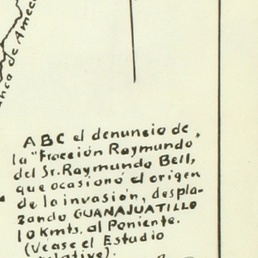 ABC el denuncio de
la "Fracción Raymundo"
del Sr. Raymundo Bell,
que ocasionó el origen
de la invasión, despla-
zando GUANAJUATILLO
10 Kmts. al Poniente.
(Vease el Estudio
relativo).